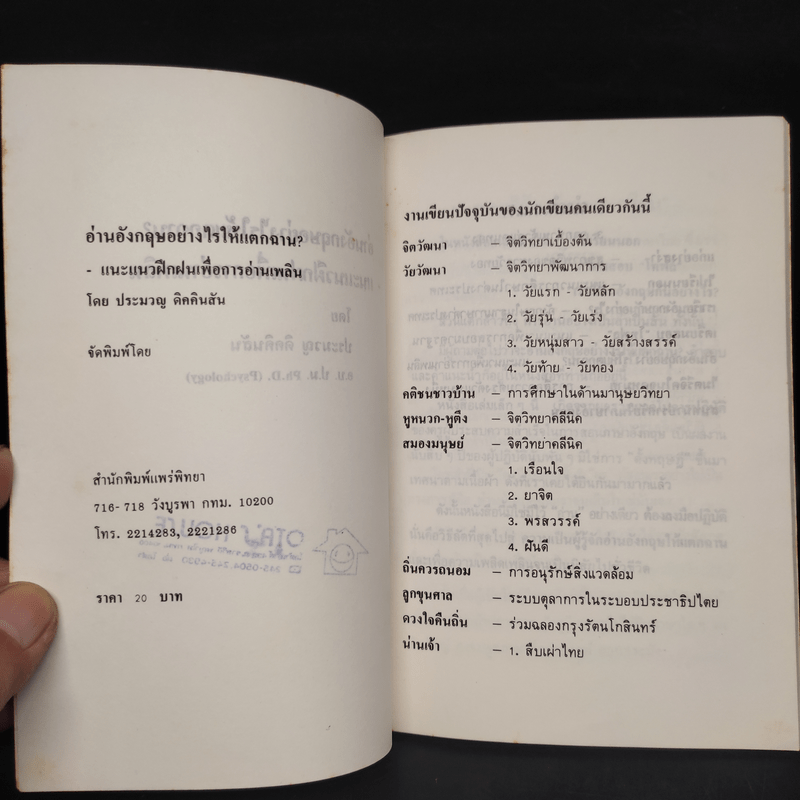 อ่านอังกฤษอย่างไรให้แตกฉาน?
- แนะแนวฝึกฝนเพื่อการอ่านเพลิน
โดย ประมวญ ดิคคินสัน
จัดพิมพ์โดย
สำนักพิมพ์แพร่พิทยา
716-718 วังบูรพา กทม. 10200
โทร. 2214283, 2221286
ราคา 20 บาท
งานเขียนปัจจุบันของนักเขียนคนเดียวกันนี้
จิตวัฒนา – จิตวิทยาเบื้องต้น
วัยวัฒนา – จิตวิทยาพัฒนาการ
1. วัยแรก - วัยหลัก
2. วัยรุ่น - วัยเร่ง
3. วัยหนุ่มสาว - วัยสร้างสรรค์
4. วัยท้าย - วัยทอง
คติชนชาวบ้าน – การศึกษาในด้านมานุษยวิทยา
หูหนวก-หูตึง – จิตวิทยาคลีนิค
สมองมนุษย์ – จิตวิทยาคลีนิค
1. เรือนใจ
2. ยาจิต
3. พรสวรรค์
4. ฝันดี
ถิ่นควรถนอม – การอนุรักษ์สิ่งแวดล้อม
ลูกขุนศาล – ระบบตุลาการในระบอบประชาธิปไตย
ดวงใจคืนถิ่น – ร่วมฉลองกรุงรัตนโกสินทร์
น่านเจ้า – 1. สืบเผ่าไทย